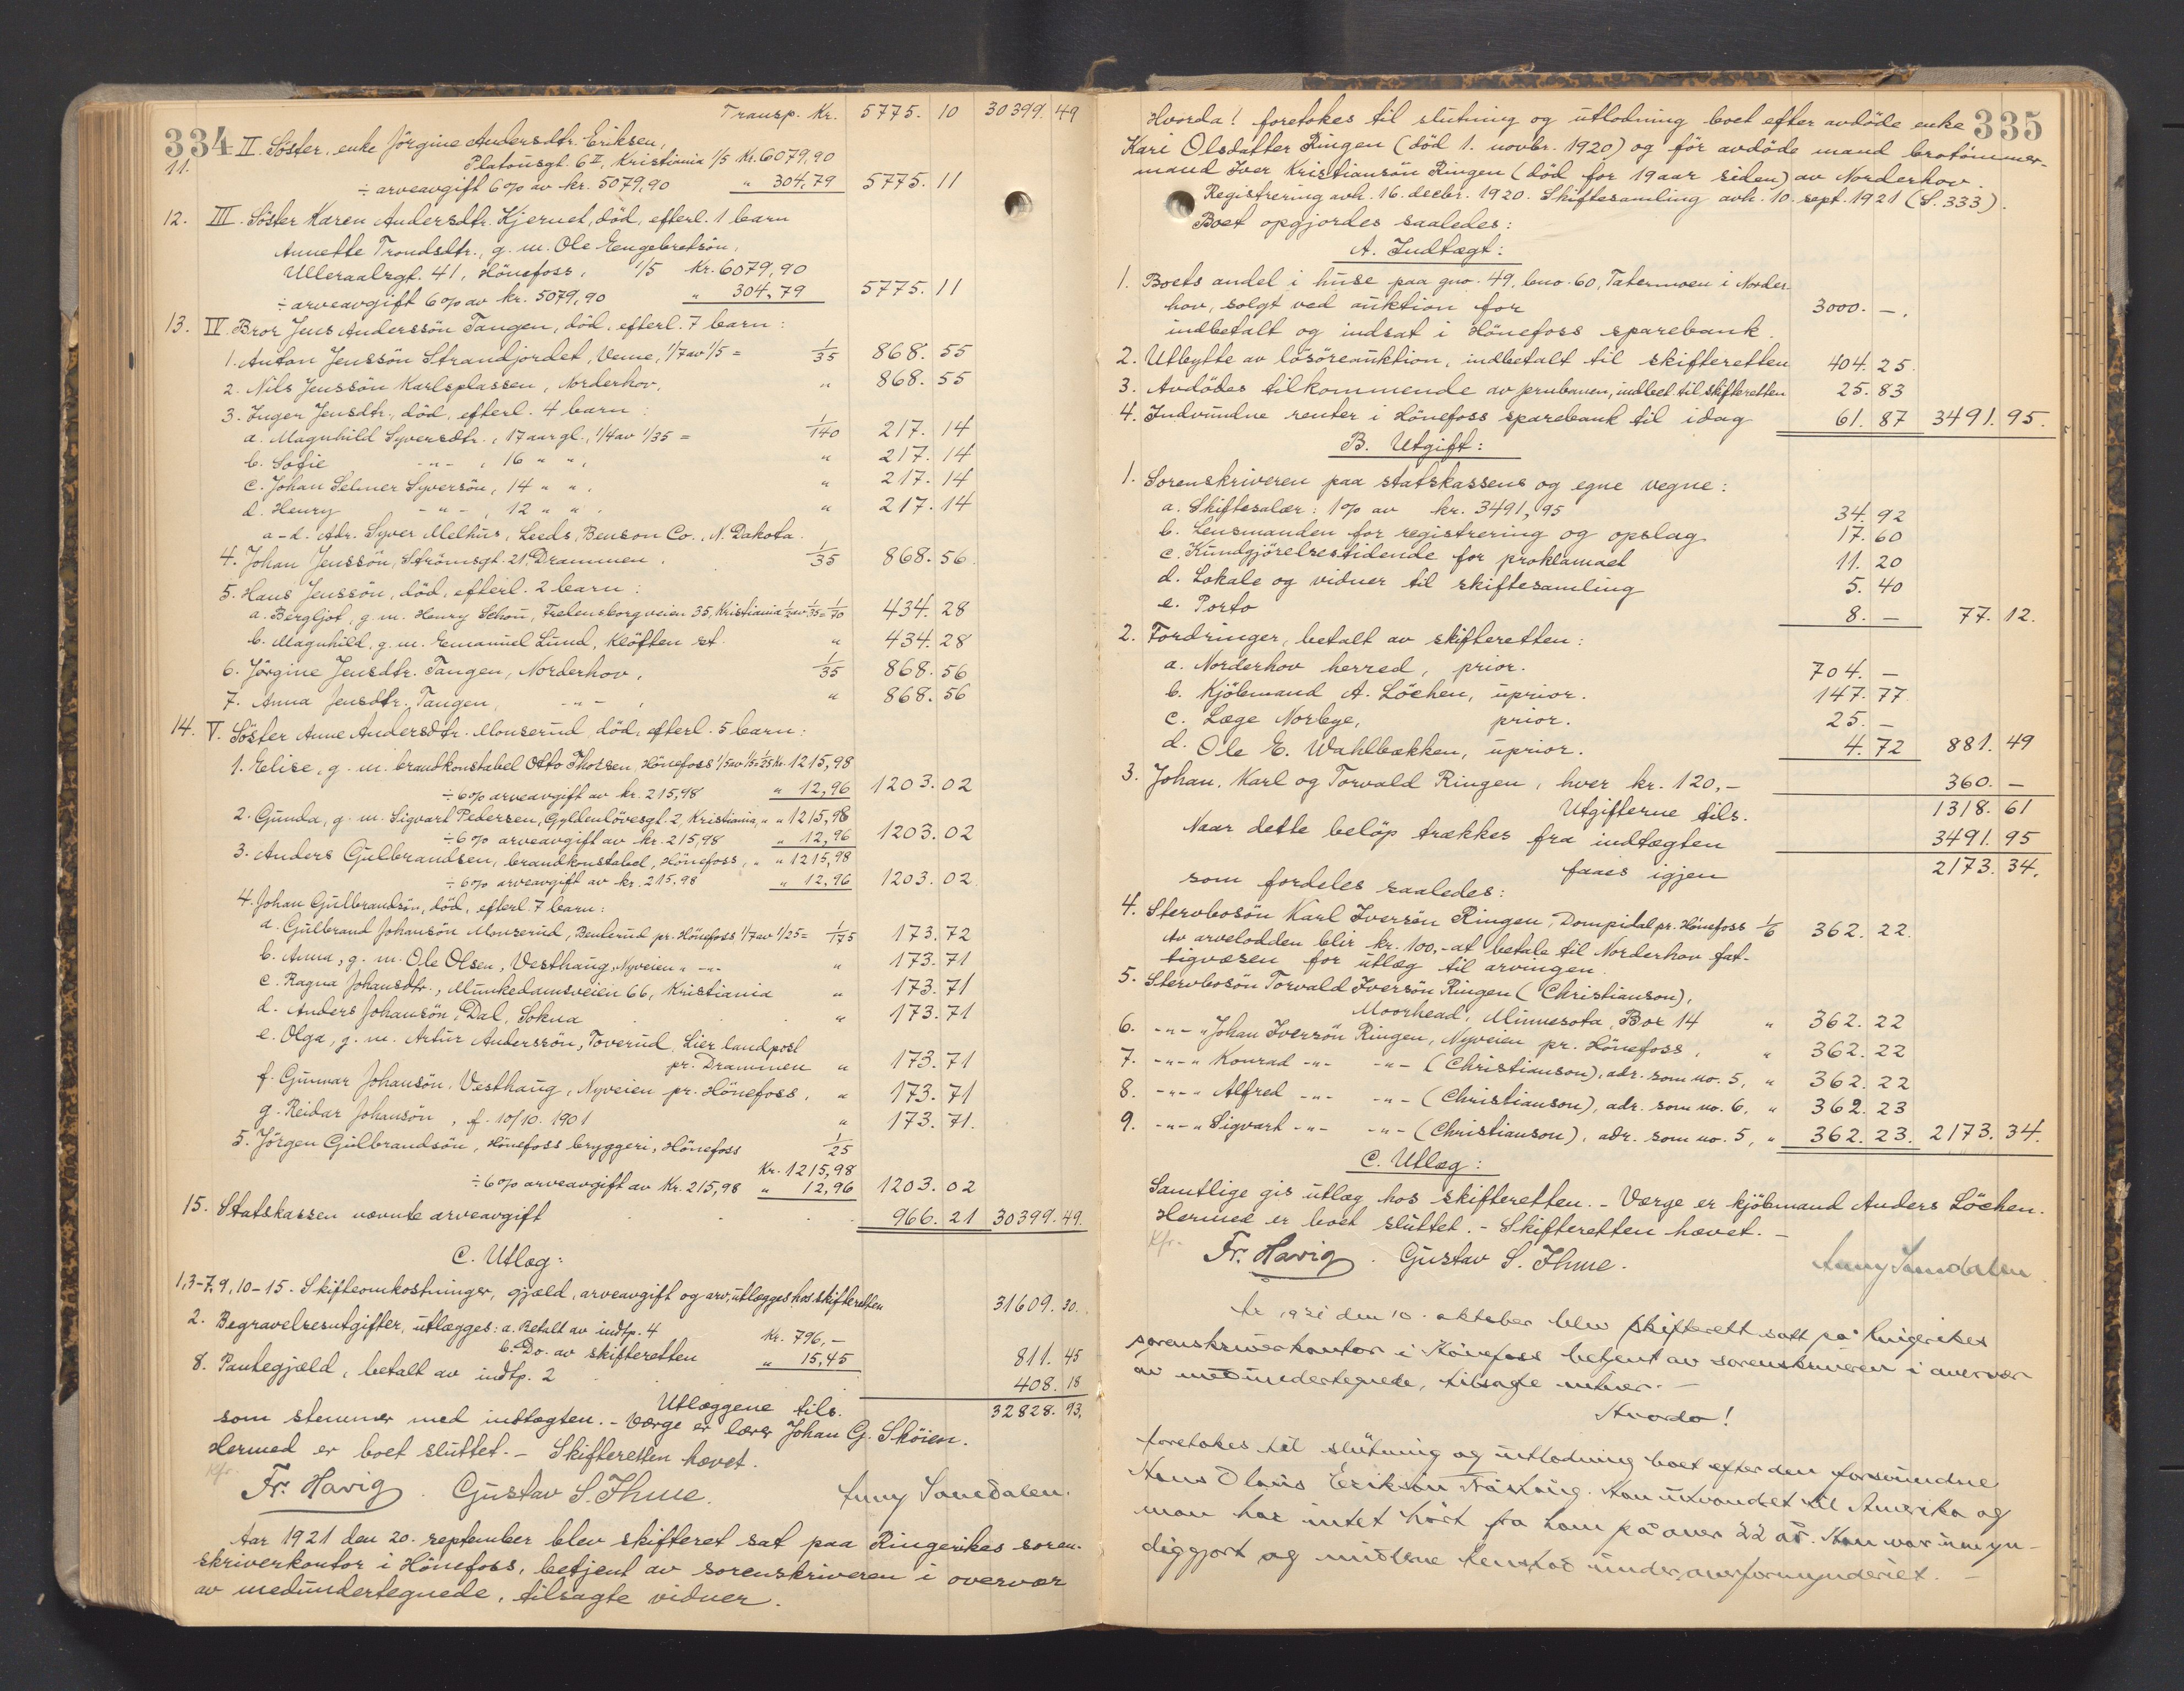 334
Transp. Kr. 5775. 10 30399. 49
11. II. Söster, enke Jörgine Andersdtr. Eriksen,
Platousgt. 6 II, Kristiania 1/5 Kr. 6079,90
÷ arveavgift 6% av kr. 5079,90 " 304,79 5775. 11
12. III. Söster Karen Andersdtr. Kjernet, död, efterl. 1 barn
Annette Trondsdtr., g. m. Ole Engebretsön,
Ulleraalsgt. 41, Hönefoss, 1/5 Kr. 6079,90
÷ arveavgift 6% av kr. 5079,90 " 304,79 5775. 11
13. IV. Bror Jens Anderssön Tangen, död, efterl. 7 barn:
1. Anton Jenssön Strandjordet, Veme, 1/7 av 1/5 = 1/35 868. 55
2. Nils Jenssön Karlsplassen, Norderhov, " 868. 55
3. Inger Jensdtr., död, efterl. 4 barn:
a. Magnhild Syversdtr., 17 aar gl., 1/4 av 1/35 = 1/140 217. 14
b. Sofie -"- , 16 " ", " 217. 14
c. Johan Selmer Syversön, 14 " ". " 217. 14
d. Henry -"- , 12 " ". " 217. 14
a-d. Adr. Syver Melhus, Leeds, Benson Co., N. Dakota.
4. Johan Jenssön, Strömsgt. 21, Drammen. 1/35 868. 56
5. Hans Jenssön, död, efterl. 2 barn:
a. Bergljot, g. m. Henry Schou, Frelensborgveien 35, Kristiania 1/2 av 1/35 = 1/70 434. 28
b. Magnhild, g. m. Emanuel Lund, Klöften st. " 434. 28
6. Jörgine Jensdtr. Tangen, Norderhov, 1/35 868. 56
7. Anna Jensdtr. Tangen, -"- , " 868. 56
14. V. Söster Anne Andersdtr. Monserud, död, efterl. 5 barn:
1. Elise, g. m. brandkonstabel Otto Thorsen, Hönefoss 1/5 av 1/5 = 1/25 Kr. 1215,98
÷ 6% arveavgift av kr. 215,98 " 12,96 1203. 02
2. Gunda, g. m. Sigvart Pedersen, Gyldenlövesgt. 2, Kristiania, " " 1215,98
÷ 6% arveavgift av kr. 215,98 " 12,96 1203. 02
3. Anders Gulbrandsen, brandkonstabel, Hönefoss, " " 1215,98
÷ 6% arveavgift av kr. 215,98 " 12,96 1203. 02
4. Johan Gulbrandsön, död, efterl. 7 barn:
a. Gulbrand Johansön Monserud, Benterud pr. Hönefoss 1/7 av 1/25 = 1/175 173. 72
b. Anna, g. m. Ole Olsen, Vesthaug, Nyveien " -"- " 173. 71
c. Ragna Johansdtr., Munkedamsveien 66, Kristiania " 173. 71
d. Anders Johansön, Dal, Sokna " 173. 71
e. Olga, g. m. Artur Anderssön, Toverud, Lier landpost
pr. Drammen " 173. 71
f. Gunnar Johansön, Vesthaug, Nyveien pr. Hönefoss, " 173. 71
g. Reidar Johansön, f. 10/10. 1901 " 173. 71.
5. Jörgen Gulbrandsön, Hönefoss bryggeri, Hönefoss 1/25
Kr. 1215,98
÷ 6% arveavgift av Kr. 215,98 " 12,96 1203. 02
15. Statskassen nævnte arveavgift 966. 21 30399. 49.
C. Utlæg:
1, 3-7, 9, 10-15. Skifteomkostninger, gjæld, arveavgift og arv, utlægges hos skifteretten 31609. 30.
2. Begravelsesutgifter, utlægges: a. Betalt av indtp. 4 Kr. 796,-
b. Do. av skifteretten " 15,45 811. 45
8. Pantegjæld, betalt av indtp. 2 408. 18
Utlæggene tils. 32828. 93.
som stemmer med indtægten. - Værge er lærer Johan G. Sköien.
Hermed er boet sluttet. - Skifteretten hævet.
Kfr.
Fr. Harig. Gustav S. Ihme. Anny Samdalen.
Aar 1921 den 20. september blev skifteret sat paa Ringerikes soren-
skriverkontor i Hönefoss, betjent av sorenskriveren i overvær
av medundertegnede, tilsagte vidner.
335
Hvorda! foretokes til slutning og utlodning boet efter avdöde enke
Kari Olsdatter Ringen (död 1. novbr. 1920) og för avdöde mand brotömmer-
mand Iver Kristiansön Ringen (död for 19 aar siden) av Norderhov.
Registrering avh. 16. decbr. 1920. Skiftesamling avh. 10. sept. 1921 (S. 333).
Boet opgjordes saaledes:
A. Indtægt:
1. Boets andel i huse paa gno. 49, bno. 60, Tatermoen i Norder-
hov, solgt ved auktion for 3000. -.
indbetalt og indsat i Hönefoss sparebank.
2. Utbytte av lösöreauktion, indbetalt til skifteretten 404. 25.
3. Avdödes tilkommende av jernbanen, indbet. til skifteretten 25. 83
4. Indvundne renter i Hönefoss sparebank til idag 61. 87 3491. 95.
B. Utgift:
1. Sorenskriveren paa statskassens og egne vegne:
a. Skiftesalær: 1% av kr. 3491,95 34. 92
b. Lensmanden for registrering og opslag 17. 60
c. Kundgjörelsestidende for proklamaet 11. 20
d. Lokale og vidner til skiftesamling 5. 40
e. Porto 8. - 77. 12.
2. Fordringer, betalt av skifteretten:
a. Norderhov herred, prior. 704. -
b. Kjöbmand A. Löchen, uprior. 147. 77
c. Læge Norbye, prior. 25. -
d. Ole E. Wahlbækken, uprior. 4. 72 881. 49
3. Johan, Karl og Torvald Ringen, hver kr. 120,- 360. -
Utgifterne tils. 1318. 61
Naar dette belöp trækkes fra indtægten 3491. 95
faaes igjen 2173. 34.
som fordeles saaledes:
4. Stervbosön Karl Iversön Ringen, Dompidal pr. Hönefoss 1/6 362. 22.
Av arvelodden blir kr. 100,- at betale til Norderhov fat-
tigvæsen for utlæg til arvingen.
5. Stervbosön Torvald Iversön Ringen (Christianson),
Moorhead, Minnesota, Box 14 " 362. 22
6. -"-" Johan Iversön Ringen, Nyveien pr. Hönefoss, " 362. 22
7. -"-" Konrad -"- -"- (Christianson), adr. som no. 5, " 362. 22
8. -"-" Alfred -"- -"- (Christianson), adr. som no. 6, " 362. 23
9. -"-" Sigvart -"- -"- (Christianson), adr. som no. 5, " 362. 23. 2173. 34.
C. Utlæg:
Samtlige gis utlæg hos skifteretten. - Værge er kjöbmand Anders Löchen.
Hermed er boet sluttet. - Skifteretten hævet. -
Kfr.
Fr. Harig. Gustav S. Ihme. Anny Samdalen.
År 1921 den 10. oktober blev skifterett satt på Ringerikes
sorenskriverkontor i Hönefoss betjent av sorenskriveren i overvær
av medundertegnede, tilsagte vidner. -
Hvorda!
foretokes til slutning og utlodning boet efter den forsvundne
Hans Olaus Erikson Båshaug. Han utvandret til Amerika og
man har intet hört fra ham på over 22 år. Han var umyn-
diggjort og midlene henstod under overformynderiet. -